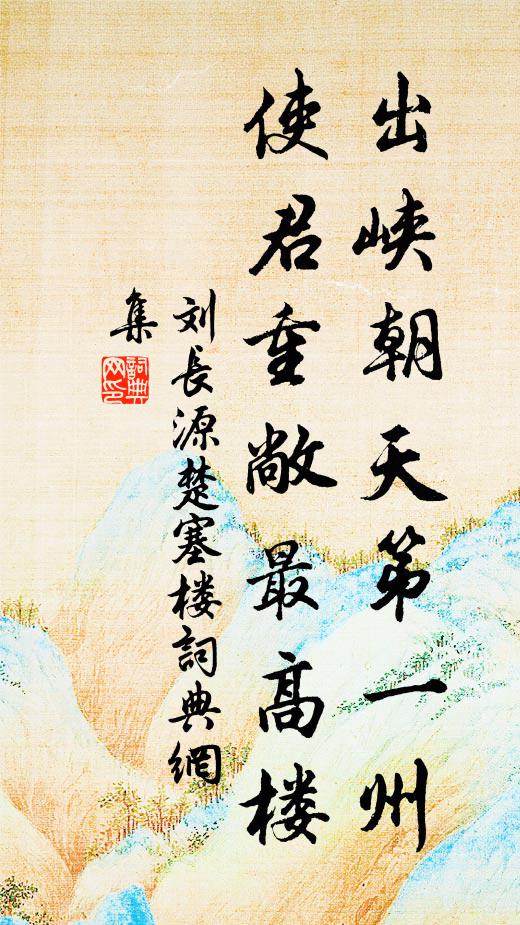 出峡朝天第一州
使君重敞最高楼
刘長源楚塞楼詞典網
集
詞典网印